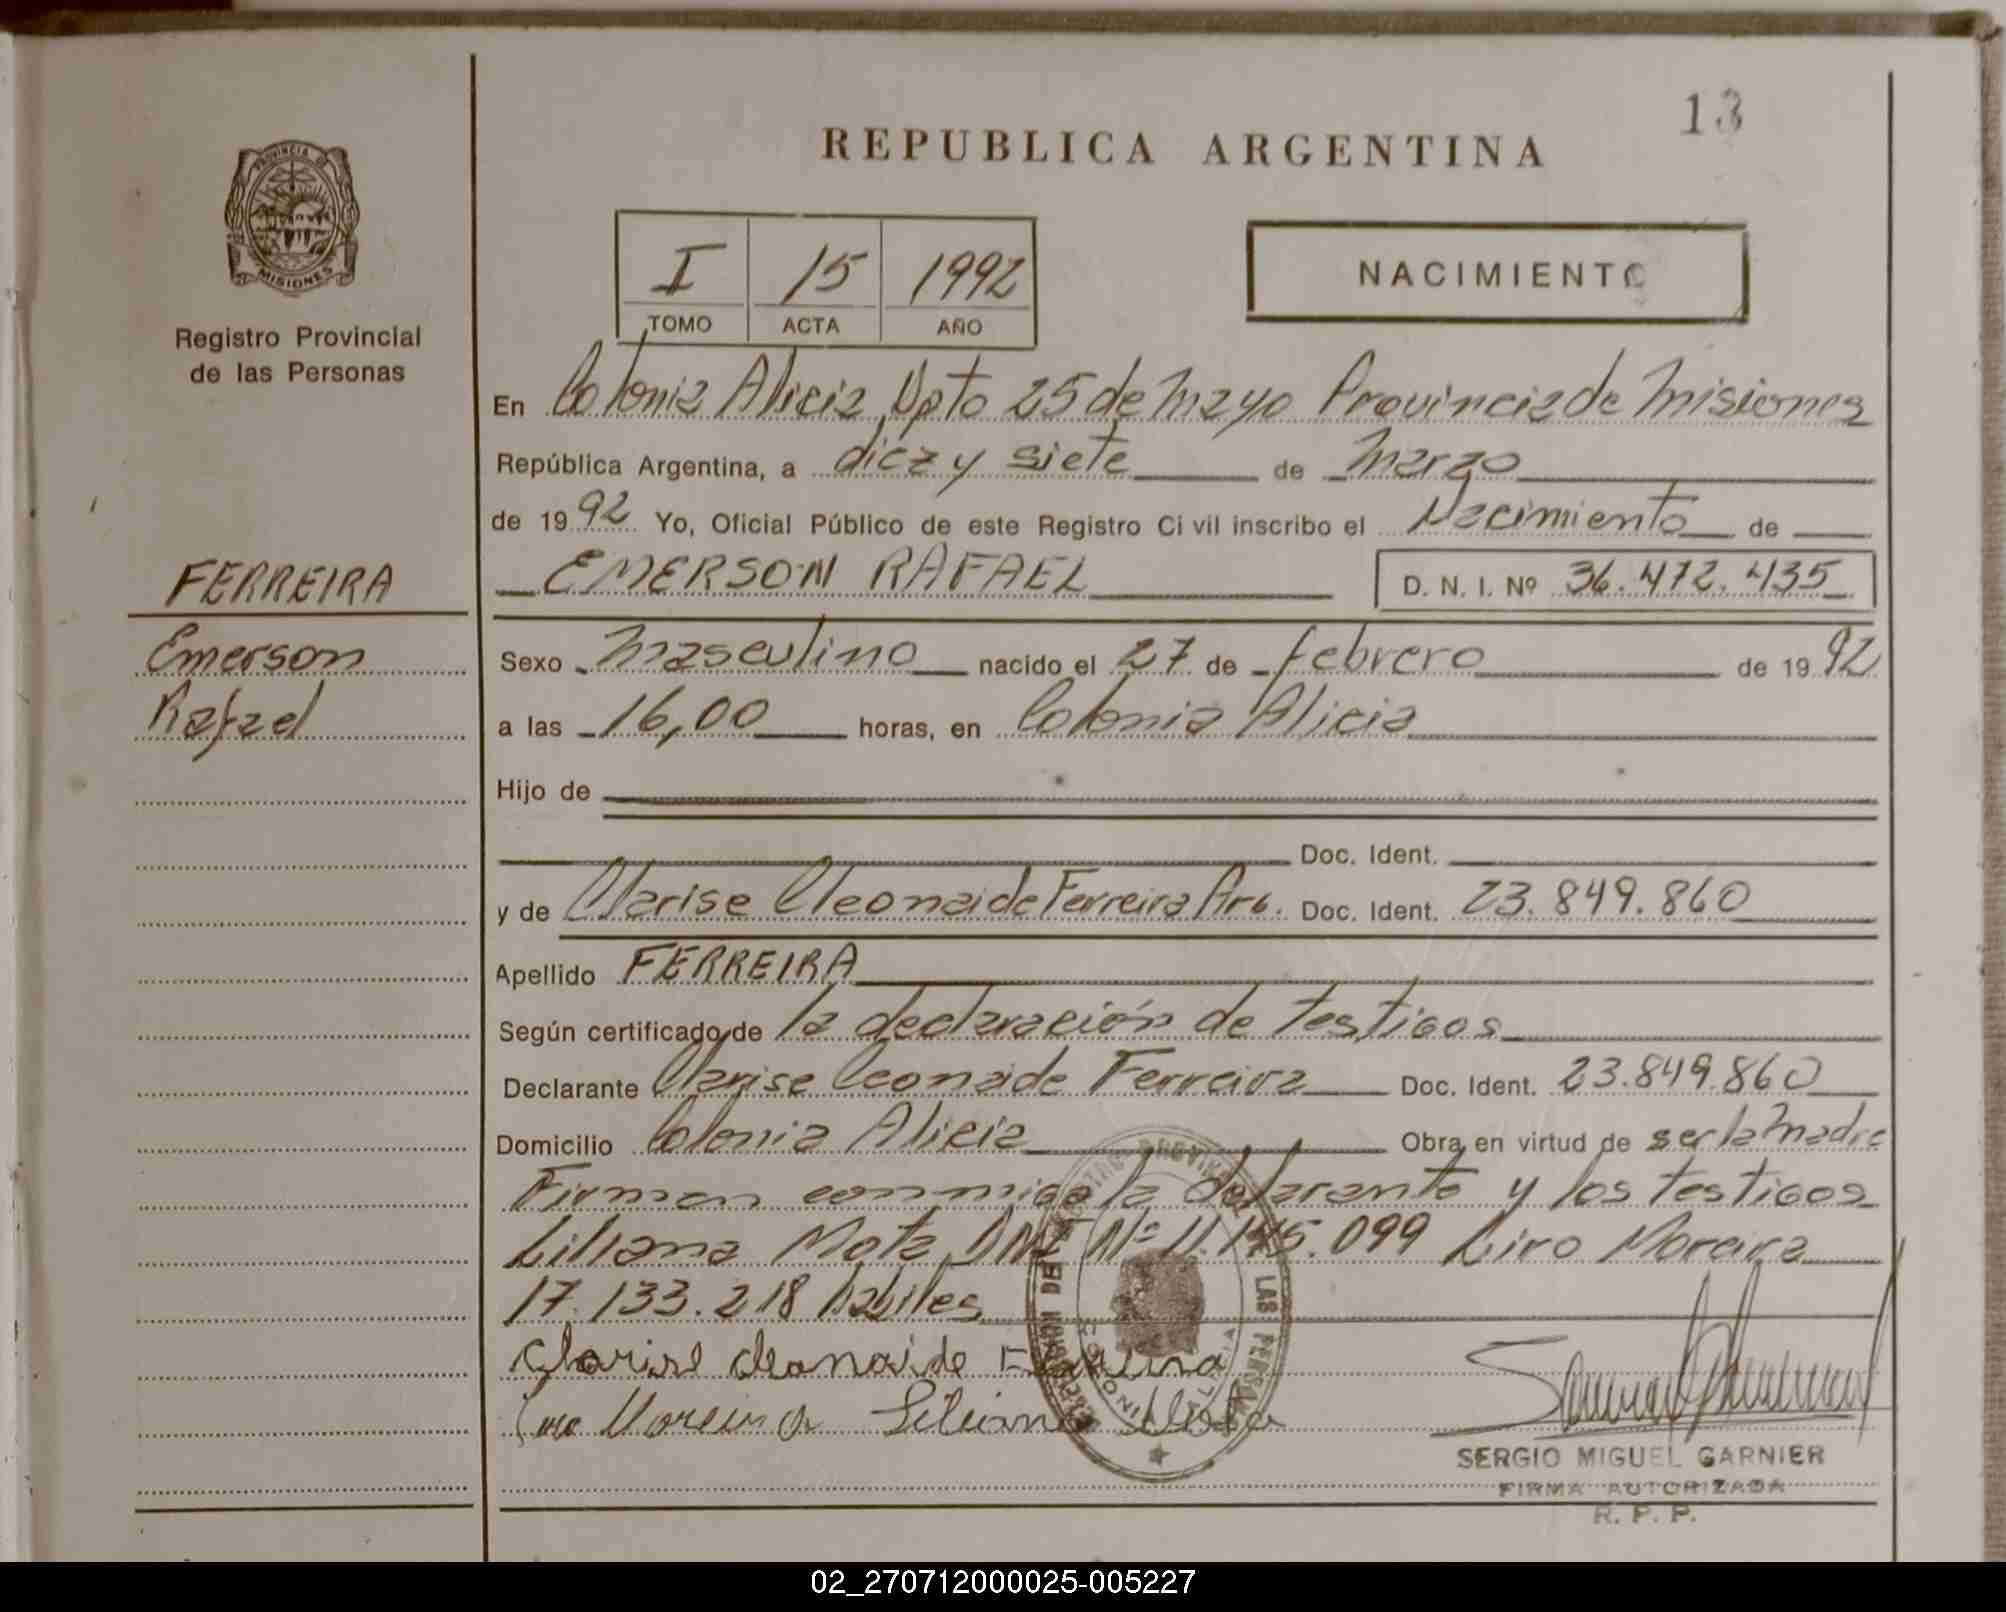 13
REPUBLICA ARGENTINA
PROVINCIA DE
MISIONES
Registro Provincial
de las Personas
I 15 1992
TOMO ACTA AÑO
NACIMIENTO
En Colonia Alicia Dpto 25 de Mayo Provincia de Misiones
República Argentina, a diez y siete de Marzo
de 1992 Yo, Oficial Público de este Registro Civil inscribo el Nacimiento de
EMERSON RAFAEL D. N. I. Nº 36.472.435
FERREIRA
Emerson
Rafael
Sexo Masculino nacido el 27 de febrero de 1992
a las 16,00 horas, en Colonia Alicia
Hijo de
Doc. Ident.
y de Clarise Cleonaide Ferreira Arg. Doc. Ident. 23.849.860
Apellido FERREIRA
Según certificado de la declaración de testigos
Declarante Clarise Cleonaide Ferreira Doc. Ident. 23.849.860
Domicilio Colonia Alicia Obra en virtud de ser la Madre
Firman conmigo la declarante y los testigos
Liliana Mota DNI Nº 11.145.099 Liro Moreira
17.133.218 habiles
Clarise Cleonaide Ferreira
Liro Moreira Liliana Mota
SERGIO MIGUEL GARNIER
FIRMA AUTORIZADA
R. P. P.
02_270712000025-005227